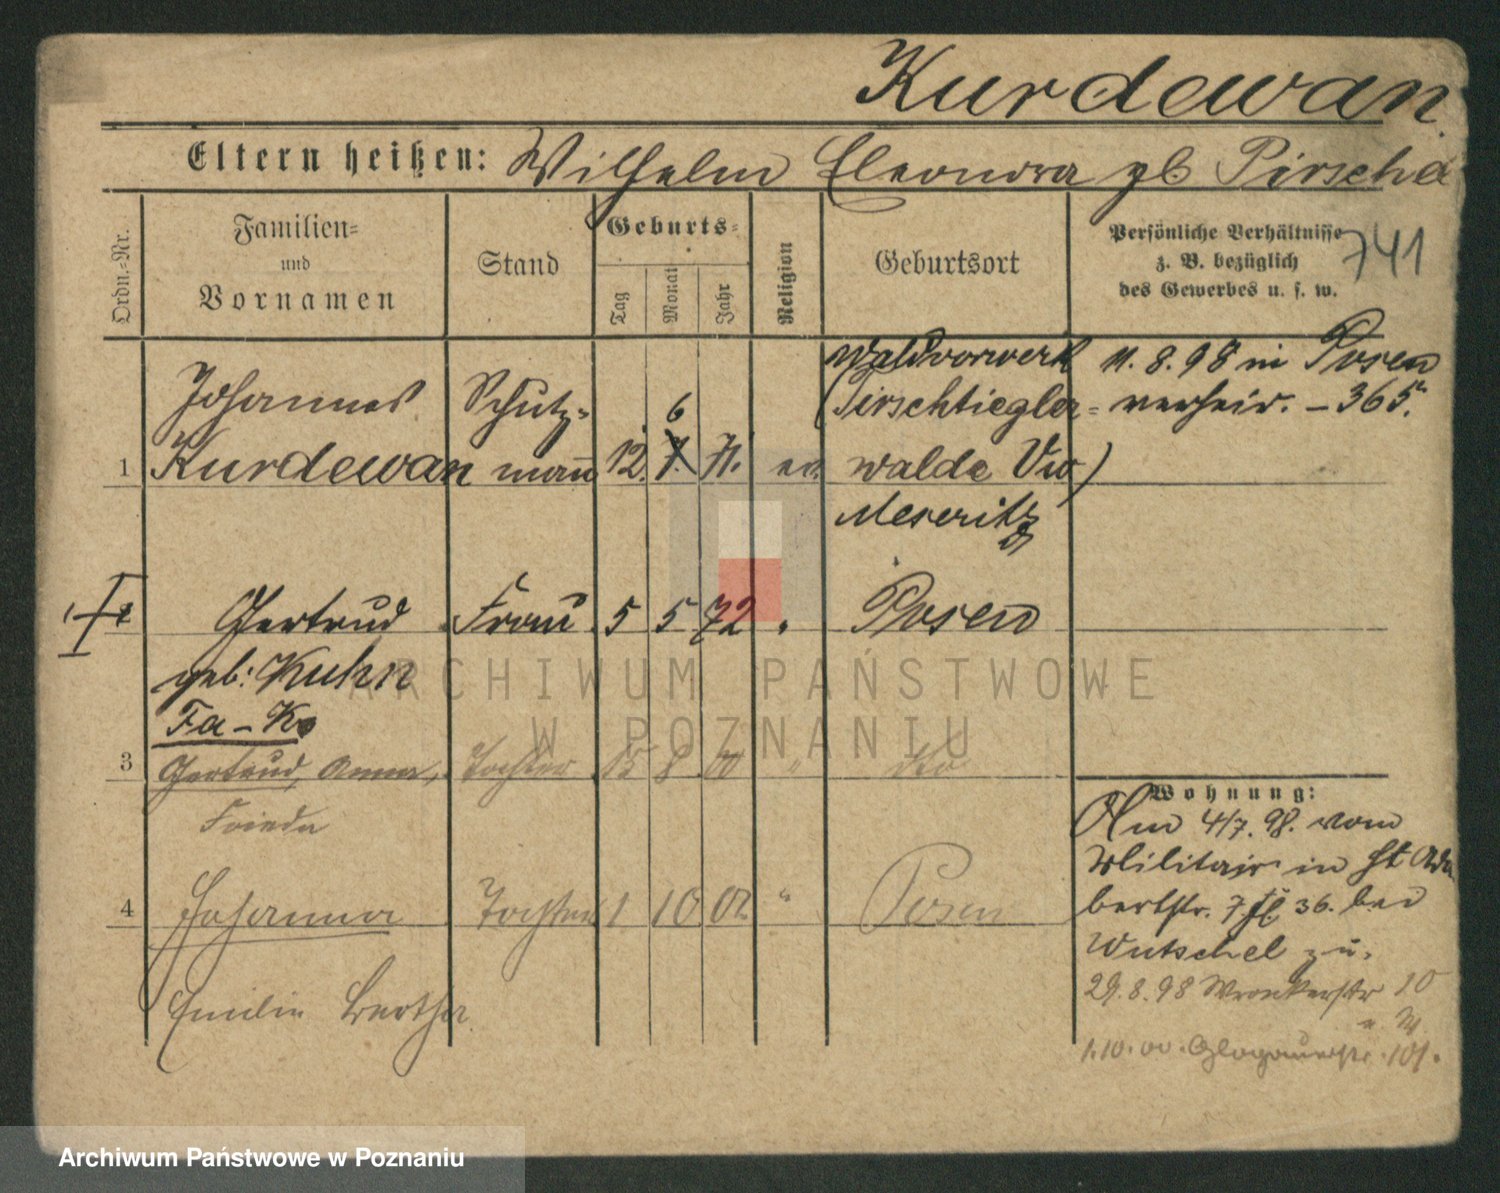 Kurdewan
Eltern heißen: Wilhelm Eleonora gb Pirscher
Ordn.-Nr.
Familien-
und
Vornamen
Stand
Geburts-
Tag
Monat
Jahr
Religion
Geburtsort
Persönliche Verhältnisse
z. B. bezüglich
des Gewerbes u. s. w.
741
1
Johannes
Kurdewan
Schutz-
mann
12. 7. 71.
6
ev.
Waldvorwerk
(Tirschtiegler-
walde Vw)
Meseritz
11. 8. 98 in Posen
verheir. - 365.
2
Gertrud
geb: Kuhn
Fa - K
Frau
5 5 72
"
Posen
3
Gertrud, Anna,
Frieda
Tochter
15 8 00
"
dto
4
Johanna
Emilie Bertha
Tochter
1 10 02
"
Posen
Wohnung:
Am 4/7. 98. vom
Militair in St Adal
bertstr. 7 36. bei
Wutschel zu.
29. 8. 98 Wronkerstr 10
1.10.00. Glogauerstr. 101.
ARCHIWUM PAŃSTWOWE
W POZNANIU
Archiwum Państwowe w Poznaniu